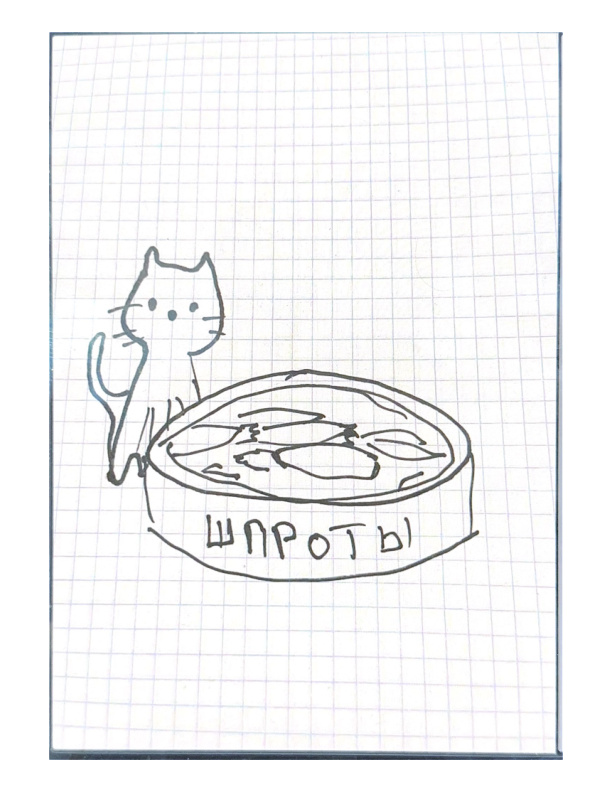 ШПРОТЫ